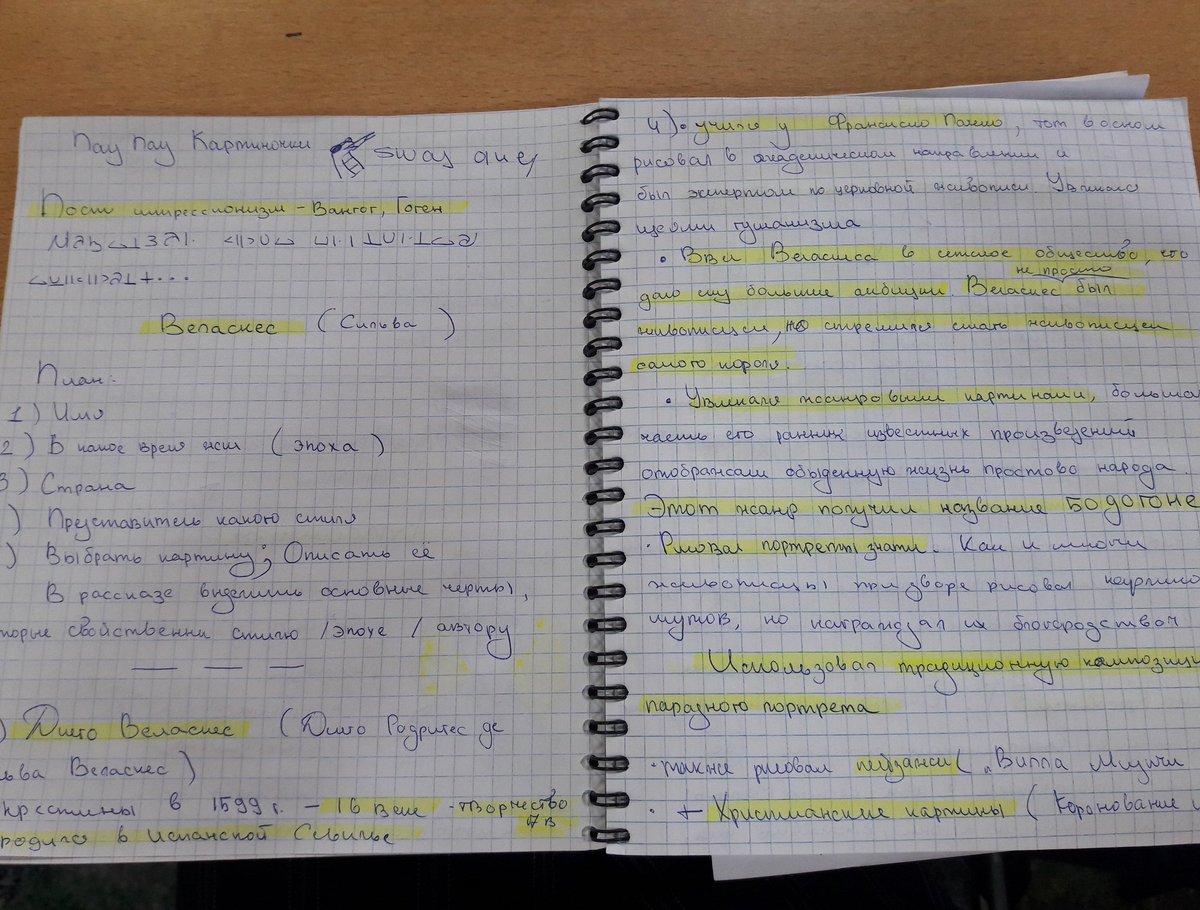 Пау Пау Картиночки sway quey
Пост импрессионизм – Вангог, Гоген
Веласкес (Сильва)
План:
1) Имя
2) В какое время жил (эпоха)
3) Страна
) Представитель какого стиля
) Выбрать картину; Описать её
В рассказе выделить основные черты,
торые свойственны стилю /эпохе / автору
) Диего Веласкес (Диего Родригес де
льва Веласкес)
крестины в 1599 г. – 16 веке - творчество 17 в
родило в испанской Сивилье
4) • учился у Франсиско Пачеко, тот в осном
рисовал в академическом направлении и
был экспертом по церковной живописи. Увлекался
идеями гуманизма
• Ввёл Веласкеса в светское общество, что
дало ему большие амбиции. Веласкес не просто был
живописцем, но стремился стать живописцем
самого короля.
• Увлекался жанровыми картинами, больша
часть его ранних известных произведений
отображали обыденную жизнь простово народа.
Этот жанр получил название Бодогоне
• Рисовал портреты знати. Как и многи
живописцы при дворе рисовал карлико
шутов, но награждал их благородством
Использовал традиционную композици
парадного портрета
• также рисовал пейзажи („Вилла Медичи
• + Христианские картины (Коронование